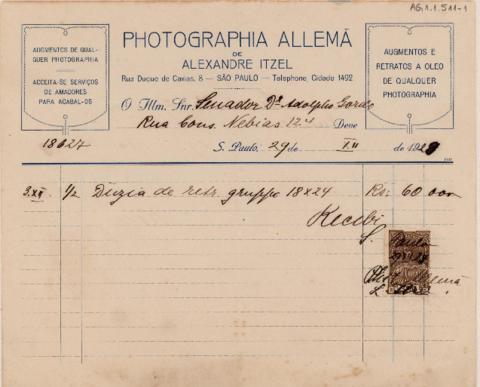 AG.1.1.511-1
PHOTOGRAPHIA ALLEMÃ
DE
ALEXANDRE ITZEL
Rua Duque de Caxias, 8 — SÃO PAULO — Telephone, Cidade 1492
AUGMENTOS DE QUAL-
QUER PHOTOGRAPHIA
ACCEITA-SE SERVIÇOS
DE AMADORES
PARA ACABAL-OS
AUGMENTOS E
RETRATOS A OLEO
DE QUALQUER
PHOTOGRAPHIA
O Illm. Snr. Senador Dr. Adolpho Gordo
Rua Cons. Nebias 124 Deve
18627
S. Paulo, 29 de XII de 1928
3.XII ½ Duzia de retr. gruppo 18x24 Rs: 60 000
Recibi
S. Paulo